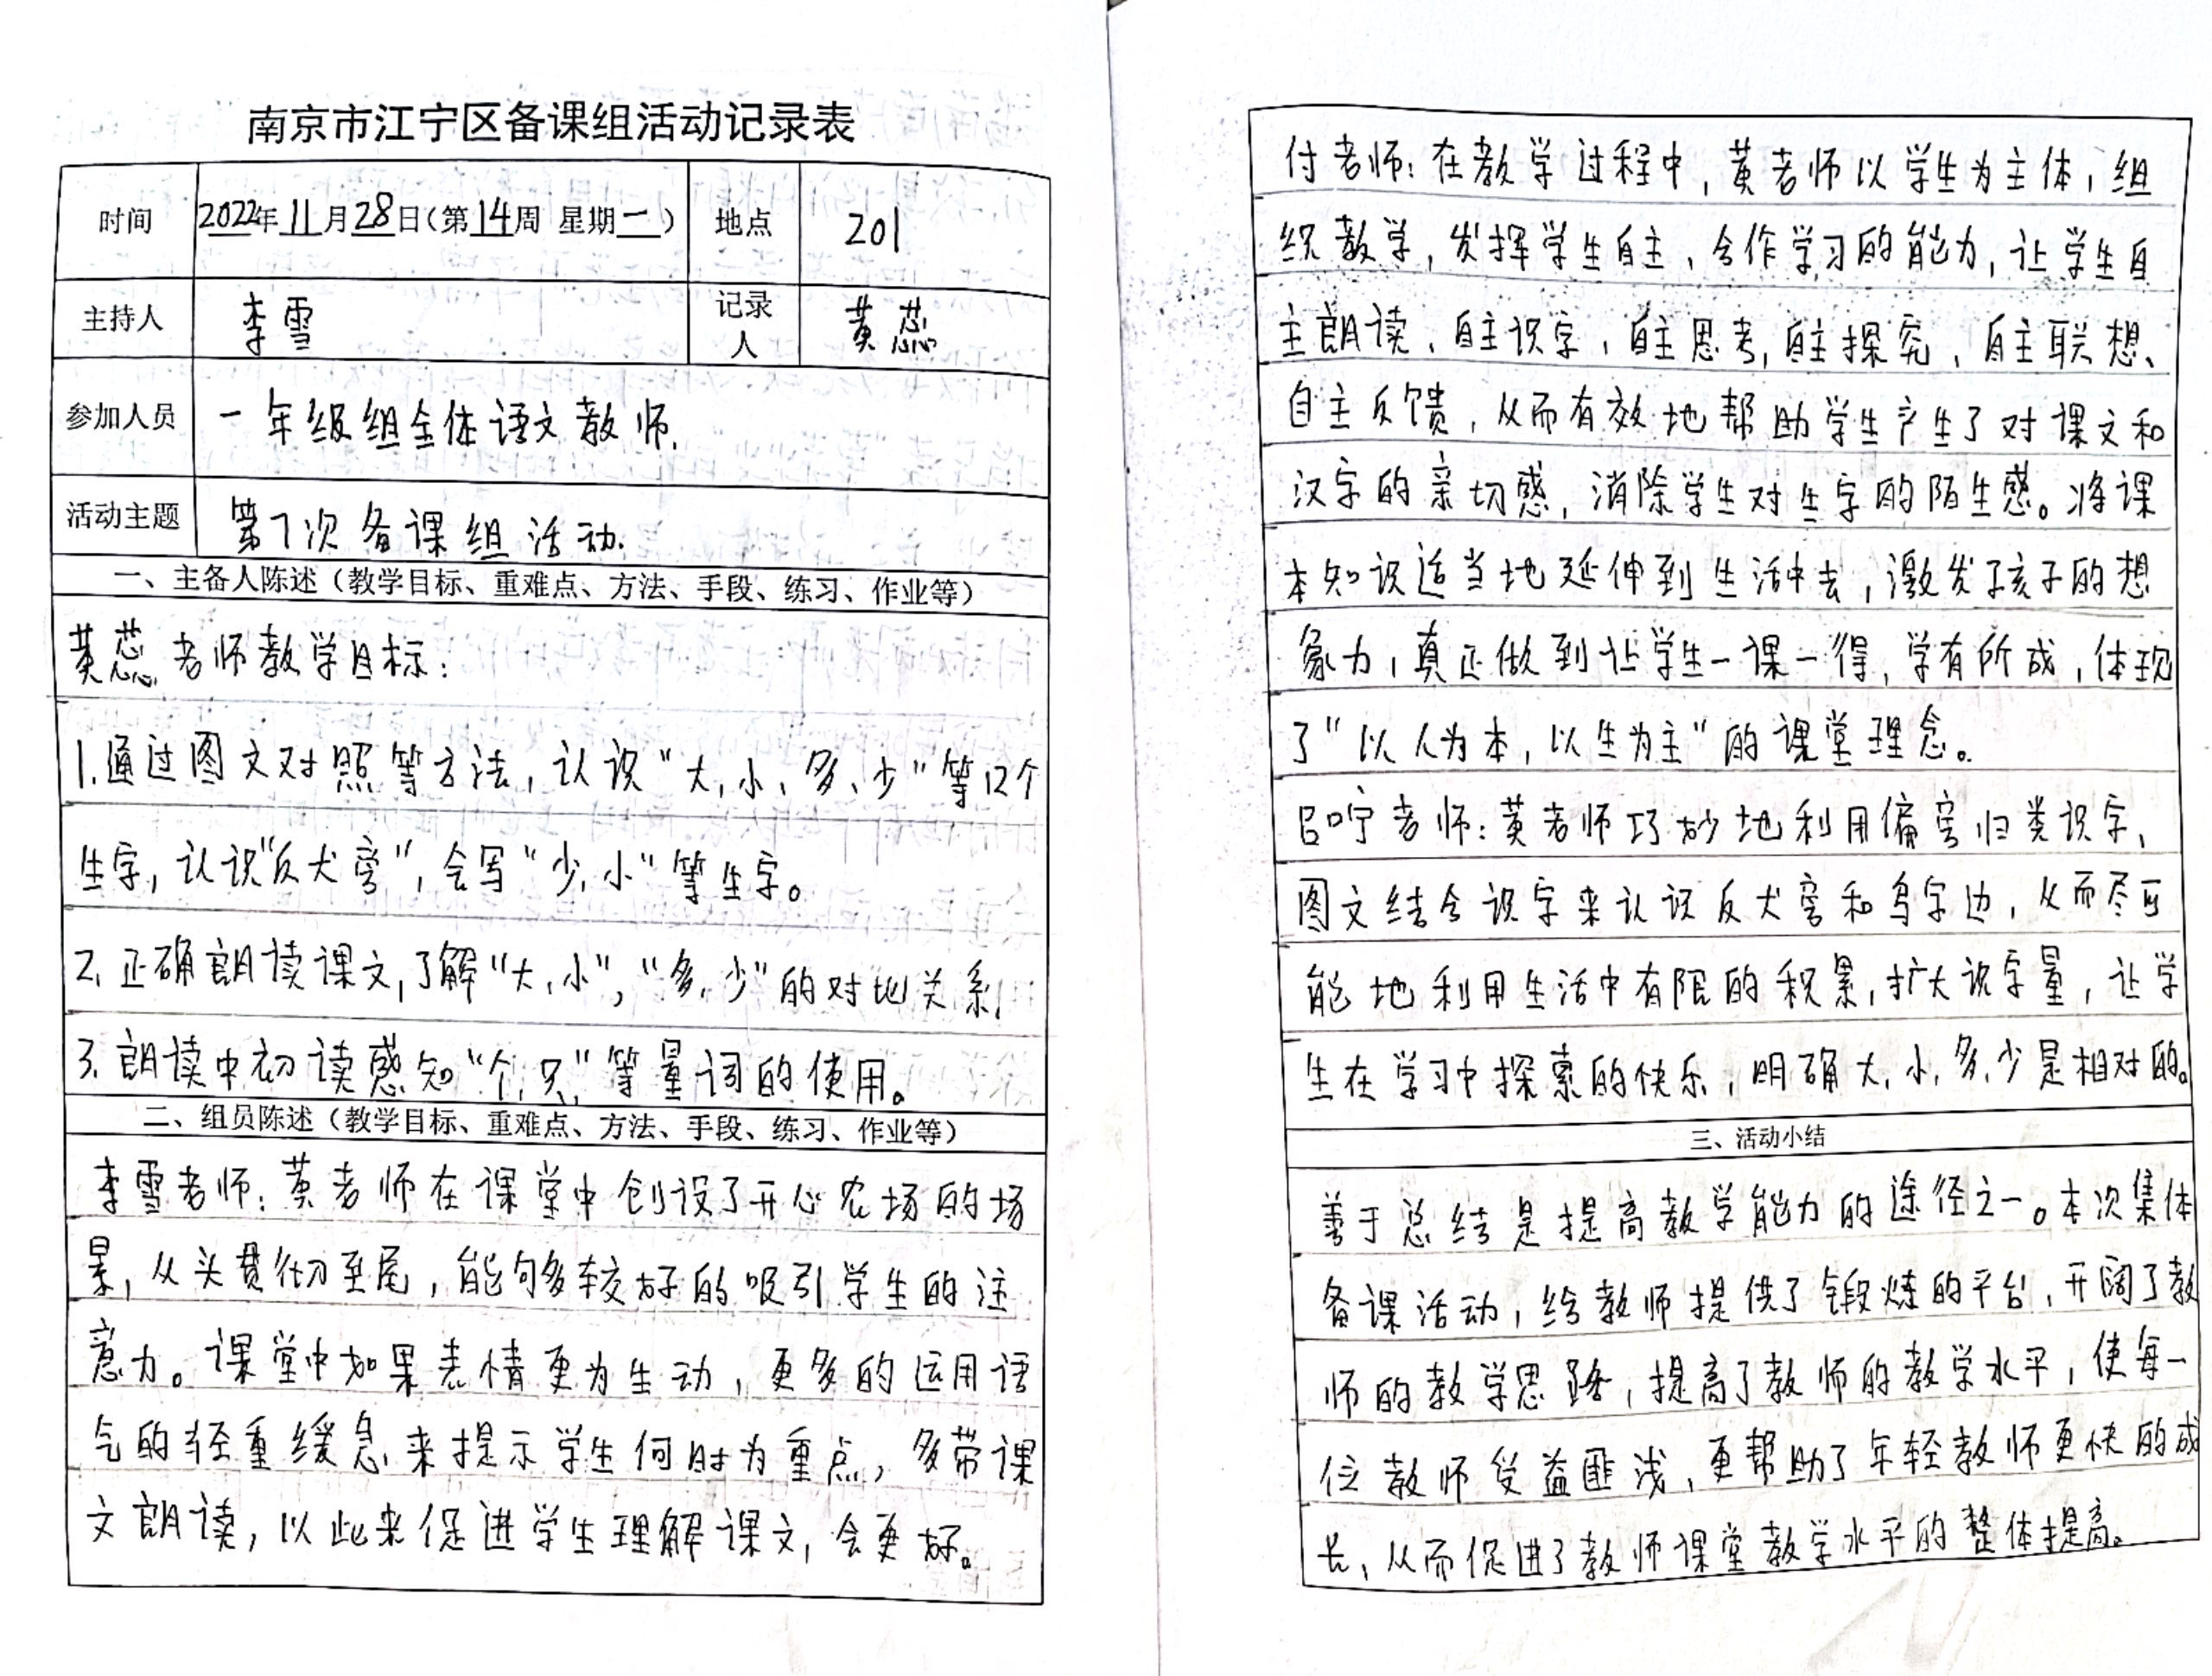 南京市江宁区备课组活动记录表
时间 2022年11月28日(第14周 星期一) 地点 201
主持人 李雪 记录人 黄蕊
参加人员 一年级组全体语文教师.
活动主题 第7次备课组活动.
一、主备人陈述（教学目标、重难点、方法、手段、练习、作业等）
黄蕊老师教学目标:
1.通过图文对照等方法，认识“大，小、多、少”等12个
生字，认识“反犬旁”，会写“少，小”等生字。
2.正确朗读课文，了解“大，小”，“多，少”的对比关系.
3.朗读中初读感知“个，只”等量词的使用。
二、组员陈述（教学目标、重难点、方法、手段、练习、作业等）
李雪老师:黄老师在课堂中创设了开心农场的场
景，从头贯彻至尾，能够较好的吸引学生的注
意力。课堂中如果表情更为生动，更多的运用语
气的轻重缓急来提示学生何时为重点，多带课
文朗读，以此来促进学生理解课文，会更好。
付老师:在教学过程中，黄老师以学生为主体，组
织教学，发挥学生自主、合作学习的能力，让学生自
主朗读、自主识字，自主思考，自主探究、自主联想、
自主反馈，从而有效地帮助学生产生了对课文和
汉字的亲切感，消除学生对生字的陌生感。将课
本知识适当地延伸到生活中去，激发了孩子的想
象力，真正做到让学生一课一得，学有所成，体现
了“以人为本，以生为主”的课堂理念。
吕咛老师:黄老师巧妙地利用偏旁归类识字、
图文结合识字来认识反犬旁和鸟字边，从而尽可
能地利用生活中有限的积累，扩大识字量，让学
生在学习中探索的快乐，明确大，小，多，少是相对的。
三、活动小结
善于总结是提高教学能力的途径之一。本次集体
备课活动，给教师提供了锻炼的平台，开阔了教
师的教学思路，提高了教师的教学水平，使每一
位教师受益匪浅，更帮助了年轻教师更快的成
长，从而促进了教师课堂教学水平的整体提高。